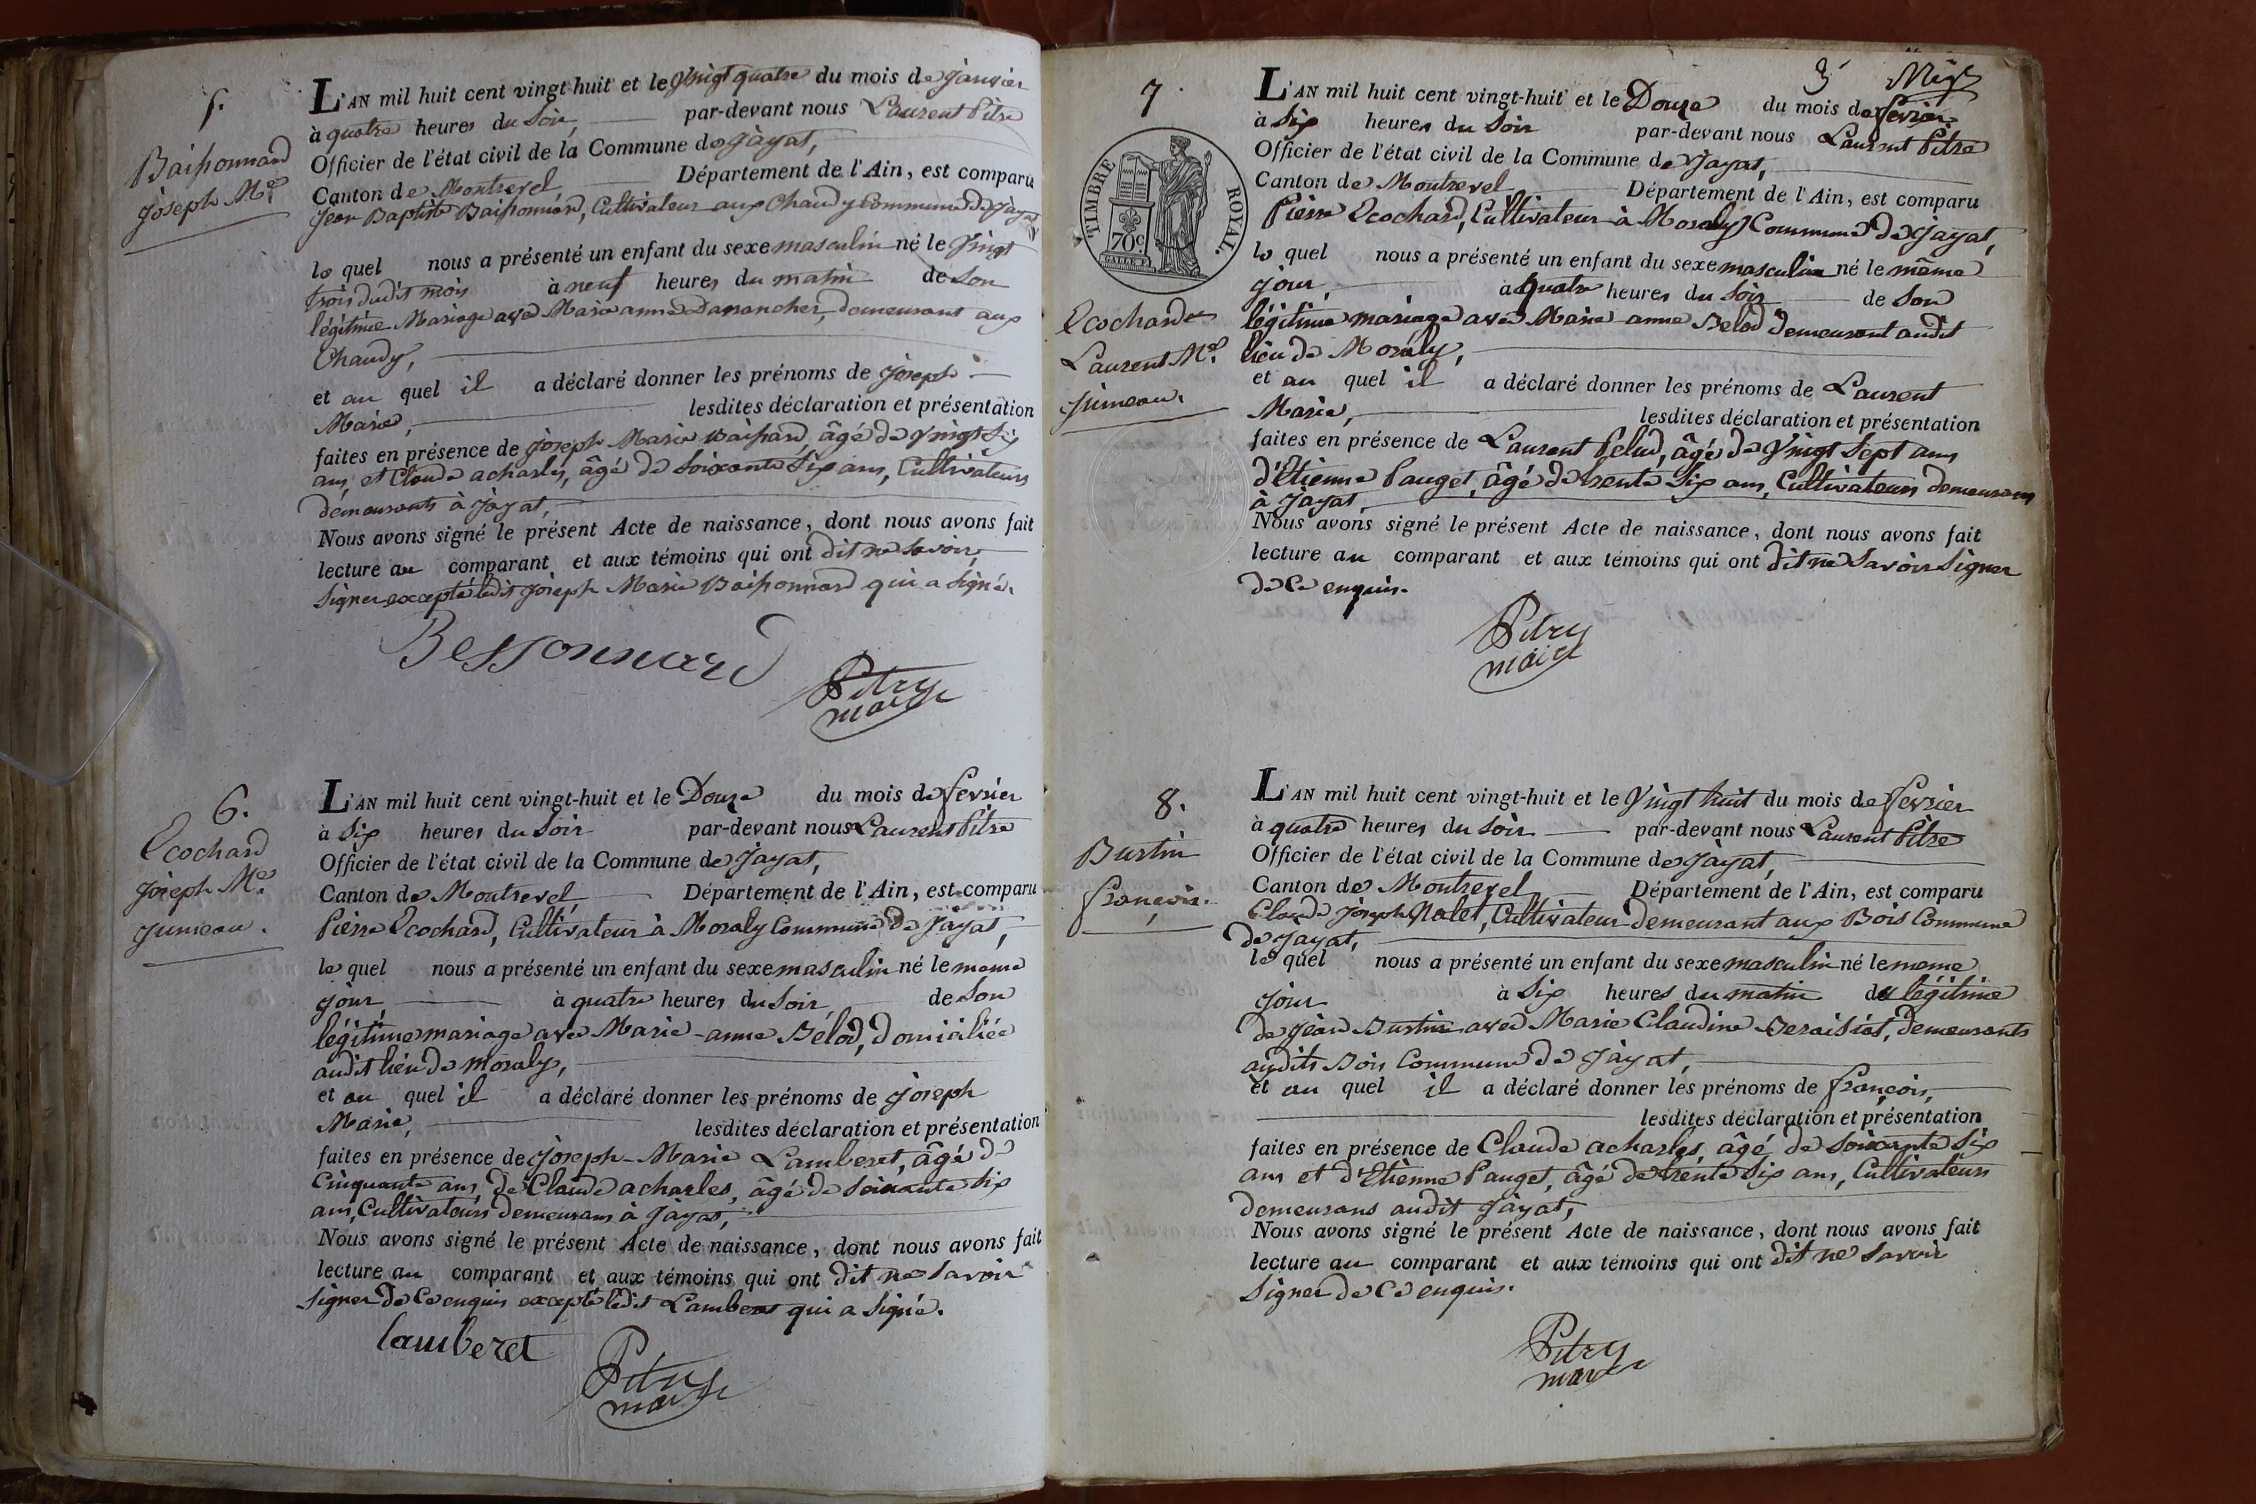 5.
Baissonnard
Joseph Mie
L'AN mil huit cent vingt-huit et le vingt quatre du mois de janvier
à quatre heures du soir, par-devant nous Laurent Pitre
Officier de l'état civil de la Commune de Jayat,
Canton de Montrevel, Département de l'Ain, est comparu
Jean Baptiste Baissonnard, Cultivateur aux Chaudy Commune de Jayat
le quel nous a présenté un enfant du sexe masculin né le vingt
trois dudit mois à neuf heures du matin de son
légitime Mariage avec Marie anne Damancher, demeurant aux
Chaudy,
et au quel il a déclaré donner les prénoms de joseph
Marie, lesdites déclaration et présentation
faites en présence de joseph Marie Baissonnard, âgé de vingt six
ans, et Claude acharles, âgé de soixante six ans, Cultivateurs
demeurants à Jayat,
Nous avons signé le présent Acte de naissance, dont nous avons fait
lecture au comparant et aux témoins qui ont dit ne savoir
signer excepté ledit joseph Marie Baissonnard qui a signé.
Bessonnard
Pitre
maire
6.
Ecochard
joseph Mie
jumeau.
L'AN mil huit cent vingt-huit et le Douze du mois de fevrier
à six heures du soir par-devant nous Laurent Pitre
Officier de l'état civil de la Commune de Jayat,
Canton de Montrevel, Département de l'Ain, est comparu
Pierre Ecochard, Cultivateur à Moraly Commune de Jayat,
le quel nous a présenté un enfant du sexe masculin né le meme
jour, à quatre heures du soir, de son
légitime mariage avec Marie-anne Belod, domiciliée
audit lieu de Moraly,
et au quel il a déclaré donner les prénoms de joseph
Marie, lesdites déclaration et présentation
faites en présence de joseph-Marie Lamberet, âgé de
Cinquante ans, de Claude acharles, âgé de soixante six
ans, Cultivateurs demeurans à Jayat,
Nous avons signé le présent Acte de naissance, dont nous avons fait
lecture au comparant et aux témoins qui ont dit ne savoir
signer de ce enquis excepté ledit Lamberet qui a signé.
lamberet
Pitre
maire
3
7.
TIMBRE ROYAL.
70c
Ecochard
Laurent Mie
jumeau.
L'AN mil huit cent vingt-huit et le Douze du mois de fevrier
à six heures du soir par-devant nous Laurent Pitre
Officier de l'état civil de la Commune de Jayat,
Canton de Montrevel Département de l'Ain, est comparu
Pierre Ecochard, Cultivateur à Moraly Commune de Jayat,
le quel nous a présenté un enfant du sexe masculin né le même
jour, à quatre heures du soir de son
légitime mariage avec Marie-anne Belod demeurant audit
lieu de Moraly,
et au quel il a déclaré donner les prénoms de Laurent
Marie, lesdites déclaration et présentation
faites en présence de Laurent Pelud, âgé de vingt sept ans
d'Etienne Pauget, âgé de trente six ans, Cultivateurs demeurans
à Jayat,
Nous avons signé le présent Acte de naissance, dont nous avons fait
lecture au comparant et aux témoins qui ont dit ne savoir signer
de ce enquis.
Pitre
maire
8.
Bustin
françois.
L'AN mil huit cent vingt-huit et le vingt huit du mois de fevrier
à quatre heures du soir par-devant nous Laurent Pitre
Officier de l'état civil de la Commune de Jayat,
Canton de Montrevel Département de l'Ain, est comparu
Claude joseph Nalet, Cultivateur demeurant aux Bois Commune
de Jayat,
le quel nous a présenté un enfant du sexe masculin né le meme
jour à six heures du matin de légitime
de jean Bustin avec Marie Claudine demeurants
audits Bois Commune de Jayat,
et au quel il a déclaré donner les prénoms de françois,
lesdites déclaration et présentation
faites en présence de Claude acharles, âgé de soixante six
ans et d'Etienne Pauget, âgé de trente six ans, Cultivateurs
demeurans audit Jayat,
Nous avons signé le présent Acte de naissance, dont nous avons fait
lecture au comparant et aux témoins qui ont dit ne savoir
signer de ce enquis.
Pitre
maire